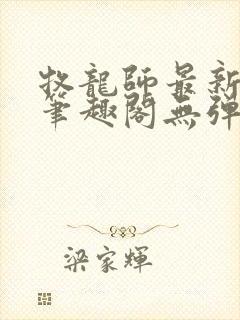 牧龍師最新
筆趣閣無彈
梁家輝